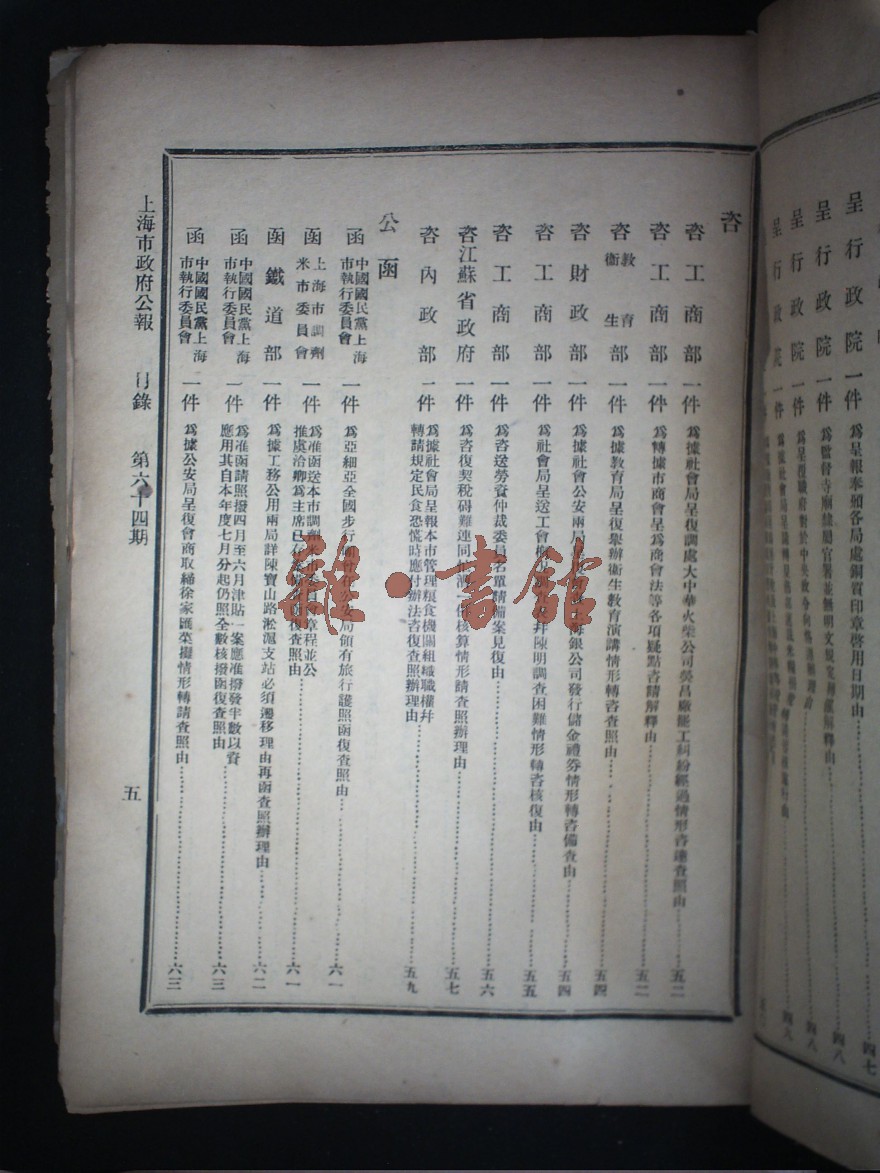 呈行政院一件 爲呈報奉頒各局處銅質印章啓用日期由 四七
呈行政院一件 四八
呈行政院一件 爲呈復職府對於中央政令向 四八
呈行政院一件 四八
咨
咨工商部一件 爲據社會局呈復調處大中華火柴公司熒昌廠罷工糾紛經過情形咨達查照由 五二
咨工商部一件 爲轉據市商會呈爲商會法等各項疑點咨請解釋由 五二
咨教育衞生部一件 爲據教育局呈復舉辦衞生教育演講情形轉咨查照由 五四
咨財政部一件 爲據社會公安兩局 海銀公司發行儲金禮券情形轉咨備查由 五四
咨工商部一件 爲社會局呈送工會 幷陳明調查困難情形轉咨核復由 五五
咨工商部一件 爲咨送勞資仲裁委員名單請備案見復由 五六
咨江蘇省政府一件 爲咨復契稅碍難連同 核算情形請查照辦理由 五七
咨內政部一件 爲據社會局呈報本市管理糧食機關組織職權幷
轉請規定民食恐慌時應付辦法咨復查照辦理由 五九
公函
函中國國民黨上海市執行委員會一件 爲亞細亞全國步行 公安局領有旅行護照函復查照由 六一
函上海市調劑米市委員會一件 爲准函送本市調劑米市委員會章程並公
推虞洽卿爲主席已存 函復查照由 六一
函鐵道部一件 爲據工務公用兩局詳陳寶山路淞滬支站必須遷移理由再函查照辦理由 六二
函中國國民黨上海市執行委員會一件 爲准函請照撥四月至六月津貼一案應准撥發半數以資
應用其自本年度七月分起仍照全數核撥函復查照由 六三
函中國國民黨上海市執行委員會一件 爲據公安局呈復會商取締徐家匯菜攤情形轉請查照由 六三
上海市政府公報 目錄 第六十四期 五
雜·書館